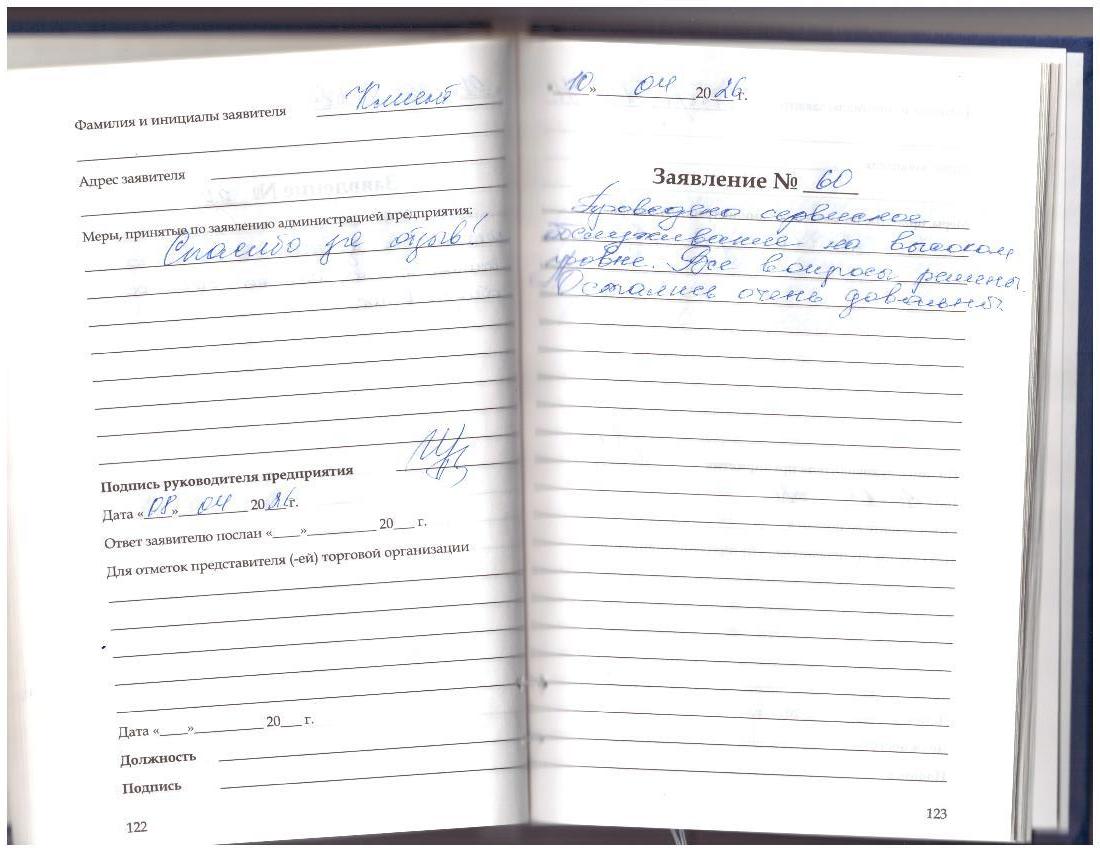 Фамилия и инициалы заявителя Клиент
Адрес заявителя
Меры, принятые по заявлению администрацией предприятия:
Спасибо за отзыв!
Подпись руководителя предприятия
Дата «08» 04 2026г.
Ответ заявителю послан «___»__________ 20___ г.
Для отметок представителя (-ей) торговой организации
Дата «____»__________ 20___ г.
Должность
Подпись
122
«10» 04 2026г.
Заявление № 60
Проведено сервисное
обслуживание на высоком
уровне. Все вопросы решены.
Остались очень довольны.
123